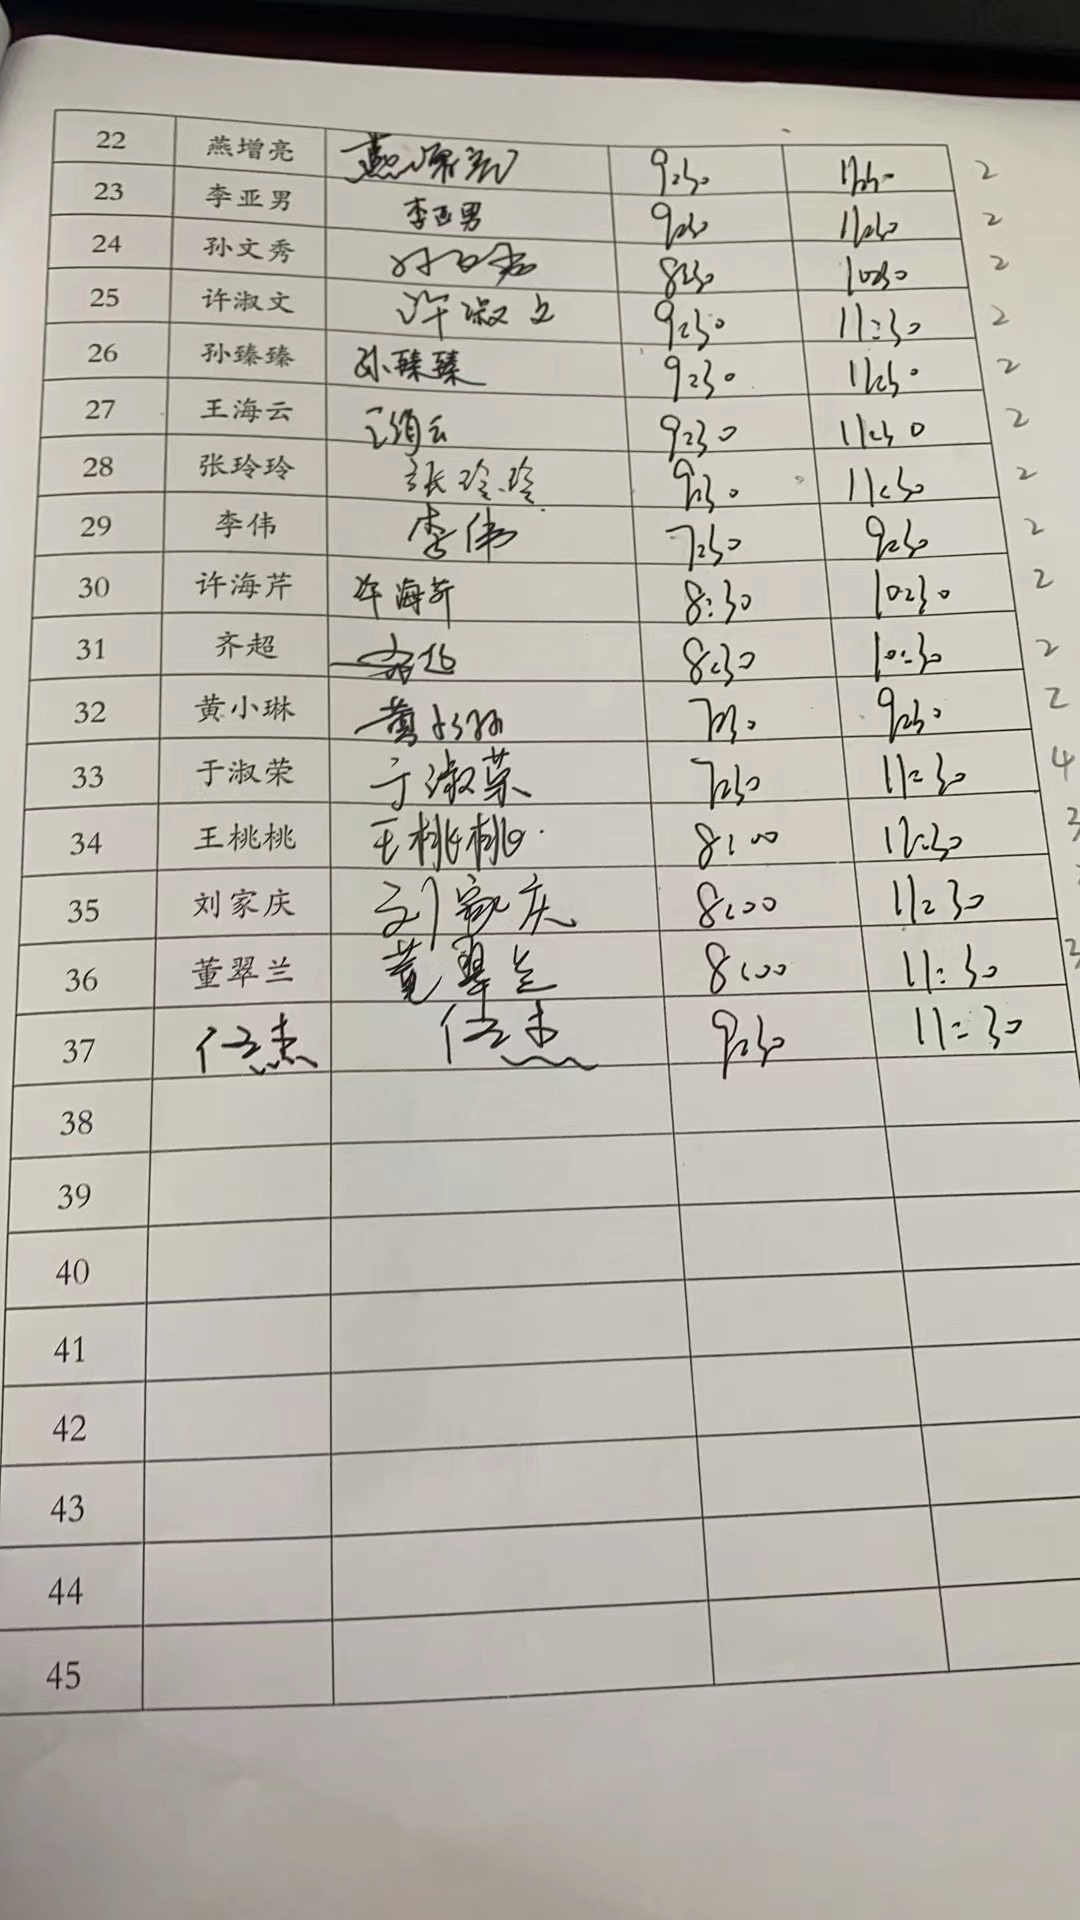 22 燕增亮 燕增亮 9:30 11:30 2
23 李亚男 李亚男 9:30 11:30 2
24 孙文秀 8:30 10:30 2
25 许淑文 许淑文 9:30 11:30 2
26 孙臻臻 孙臻臻 9:30 11:30 2
27 王海云 王海云 9:30 11:30 2
28 张玲玲 张玲玲 9:30 11:30 2
29 李伟 李伟 7:30 9:30 2
30 许海芹 许海芹 8:30 10:30 2
31 齐超 齐超 8:30 10:30 2
32 黄小琳 黄小琳 7:30 9:30 2
33 于淑荣 于淑荣 7:30 11:30 4
34 王桃桃 王桃桃 8:00 11:30 3
35 刘家庆 刘家庆 8:00 11:30
36 董翠兰 董翠兰 8:00 11:30 3
37 任杰 任杰 9:30 11:30
38
39
40
41
42
43
44
45